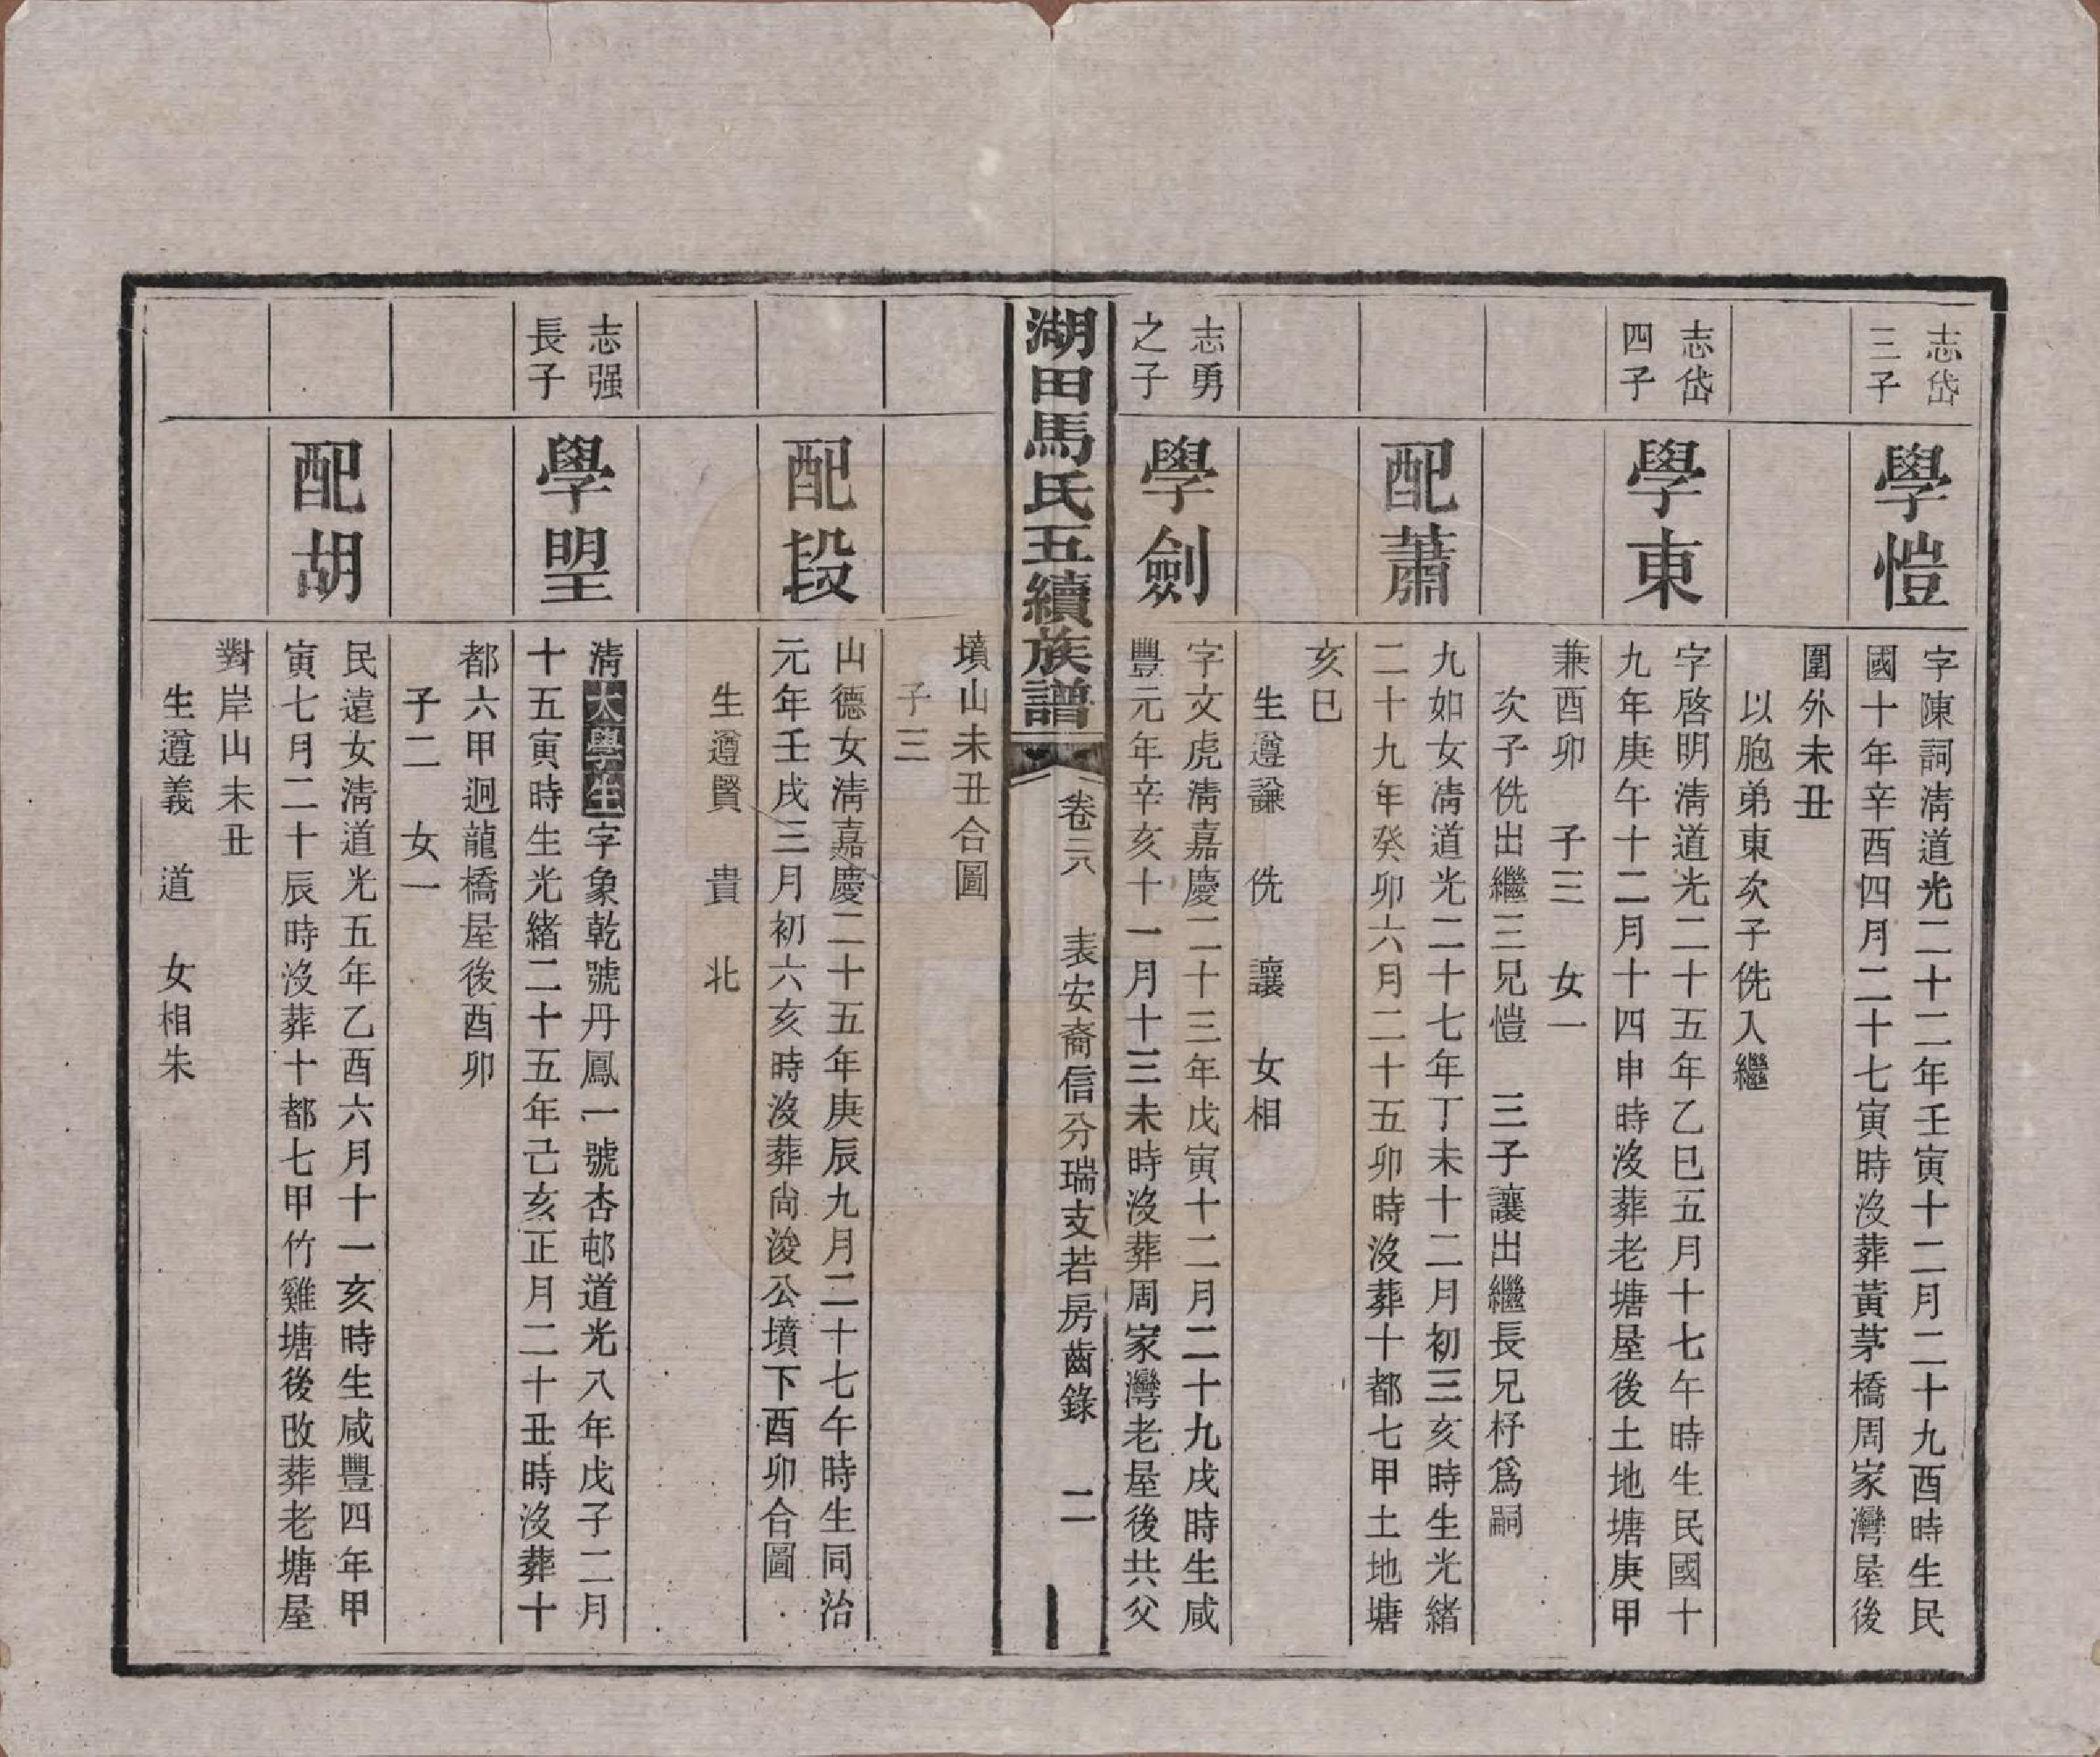 志岱
三子
學愷
字陳詞淸道光二十二年壬寅十二月二十九酉時生民
國十年辛酉四月二十七寅時沒葬黃茅橋周家灣屋後
圍外未丑
以胞弟東次子侁入繼
志岱
四子
學東
字啓明淸道光二十五年乙巳五月十七午時生民國十
九年庚午十二月十四申時沒葬老塘屋後土地塘庚甲
兼酉卯　子三　女一
次子侁出繼三兄愷　三子讓出繼長兄杍爲嗣
配蕭
九如女淸道光二十七年丁未十二月初三亥時生光緒
二十九年癸卯六月二十五卯時沒葬十都七甲土地塘
亥巳
生遵謙　侁　讓　女相
志勇
之子
學劍
字文虎淸嘉慶二十三年戊寅十二月二十九戌時生咸
豐元年辛亥十一月十三未時沒葬周家灣老屋後共父
湖田馬氏五續族譜
卷二八　表安裔信分瑞支若房齒錄　二
墳山未丑合圖
子三
配段
山德女淸嘉慶二十五年庚辰九月二十七午時生同治
元年壬戌三月初六亥時沒葬尙浚公墳下酉卯合圖
生遵賢　貴　北
志强
長子
學朢
淸太學生字象乾號丹鳳一號杏邨道光八年戊子二月
十五寅時生光緒二十五年己亥正月二十丑時沒葬十
都六甲迥龍橋屋後酉卯
子二　女一
配胡
民遠女淸道光五年乙酉六月十一亥時生咸豐四年甲
寅七月二十辰時沒葬十都七甲竹雞塘後改葬老塘屋
對岸山未丑
生遵義　道　女相朱